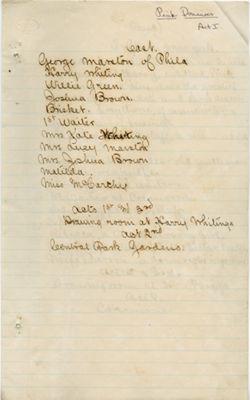 Pink Dominoes
Act I
Cast.
George Marston of Phila
Harry Whiting
Willie Green.
Joshua Brown.
Brisket.
1st Waiter
Mrs Kate Whiting
Mrs Lucy Marston
Mrs Joshua Brown
Matilda.
Miss McCarchy
Acts 1st & 3rd
Drawing room at Harry Whitings
Act 2nd
Central Park Gardens.